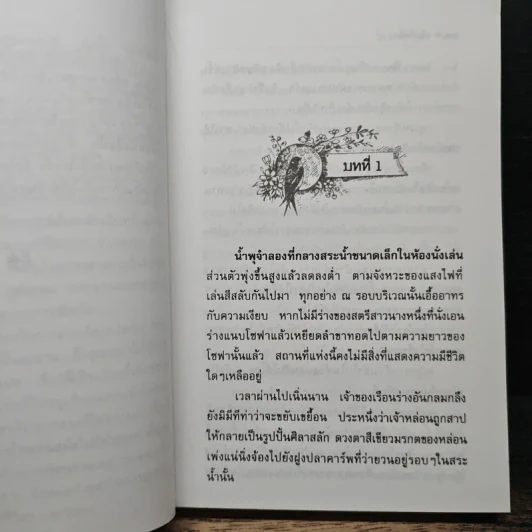 บทที่ 1
น้ำพุจำลองที่กลางสระน้ำขนาดเล็กในห้องนั่งเล่น
ส่วนตัวพุ่งขึ้นสูงแล้วลดลงต่ำ ตามจังหวะของแสงไฟที่
เล่นสีสลับกันไปมา ทุกอย่าง ณ รอบบริเวณนั้นเอื้ออาทร
กับความเงียบ หากไม่มีร่างของสตรีสาวนางหนึ่งที่นั่งเอน
ร่างแนบโซฟาแล้วเหยียดลำขาทอดไปตามความยาวของ
โซฟานั้นแล้ว สถานที่แห่งนี้คงไม่มีสิ่งที่แสดงความมีชีวิต
ใดๆเหลืออยู่
เวลาผ่านไปเนิ่นนาน เจ้าของเรือนร่างอันกลมกลึง
ยังมิมีทีท่าว่าจะขยับเขยื้อน ประหนึ่งว่าเจ้าหล่อนถูกสาป
ให้กลายเป็นรูปปั้นศิลาสลัก ดวงตาสีเขียวมรกตของหล่อน
เพ่งแน่นิ่งจ้องไปยังฝูงปลาคาร์พที่ว่ายวนอยู่รอบๆในสระ
น้ำนั้น